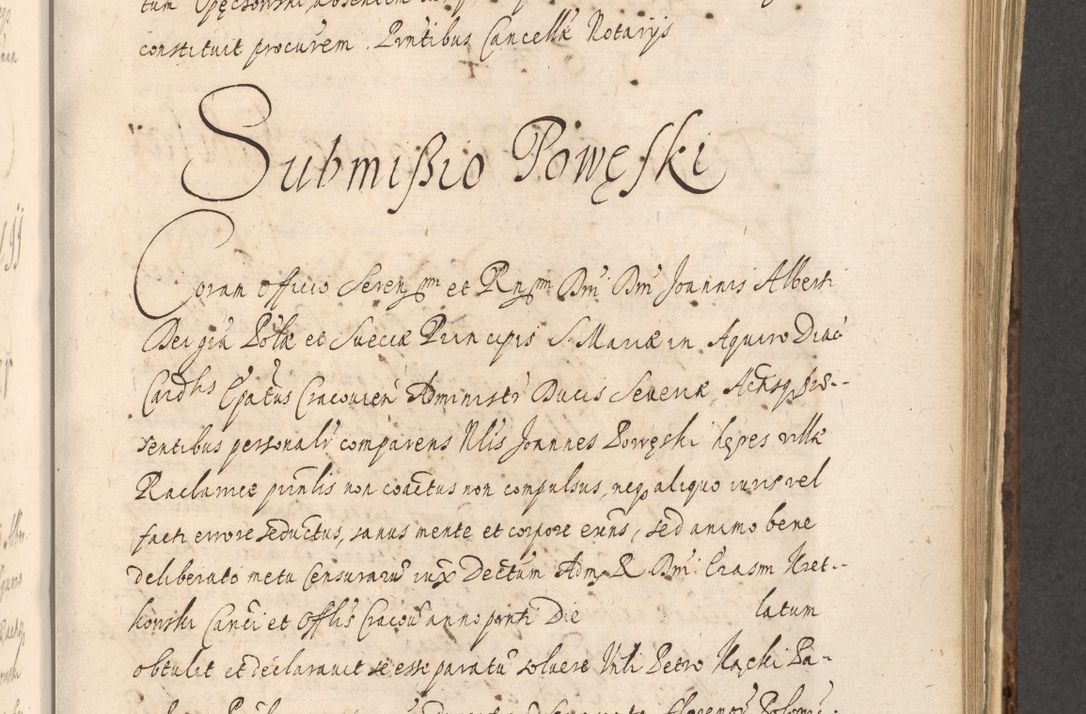 constituit procurem. Pntibus Cancellæ Notarijs
Submißio Powęski
Coram Officio Serenssmi et Rnssmi Dni Dni Joannis Alberti
Dei gra Polæ et Sueciæ Principis S. Mariæ in Aquiro Diac
Cardlis Epatus Cracovien Administr Ducis Severiæ, Actisq præ-
sentibus personalr comparens Nlis Joannes Powęski hæres villæ
Raclawice prnlis non coactus non compulsus, neq aliquo iuris vel
facti errore seductus, sanus mente et corpore exns, sed animo bene
deliberato metu Censuraru iux Dectum Adm R Dni Erasm Kret-
kowski Canci et Offlis Cracou anno pnti Die latum
obtulit et declarauit se esse paratu soluere Nli Petro Kącki Pa-